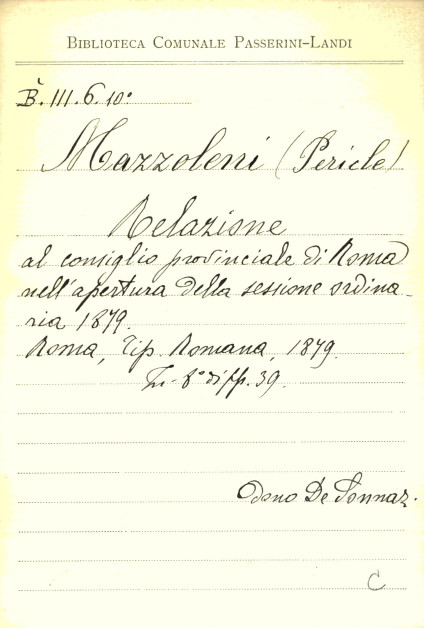 BIBLIOTECA COMUNALE PASSERINI-LANDI
B. III. 6. 10º
Mazzoleni (Pericle)
Relazione
al consiglio provinciale di Roma
nell'apertura della sessione ordina-
ria 1879.
Roma, Tip. Romana, 1879.
In-8º di pp. 39.
Dono De Sonnaz.
C